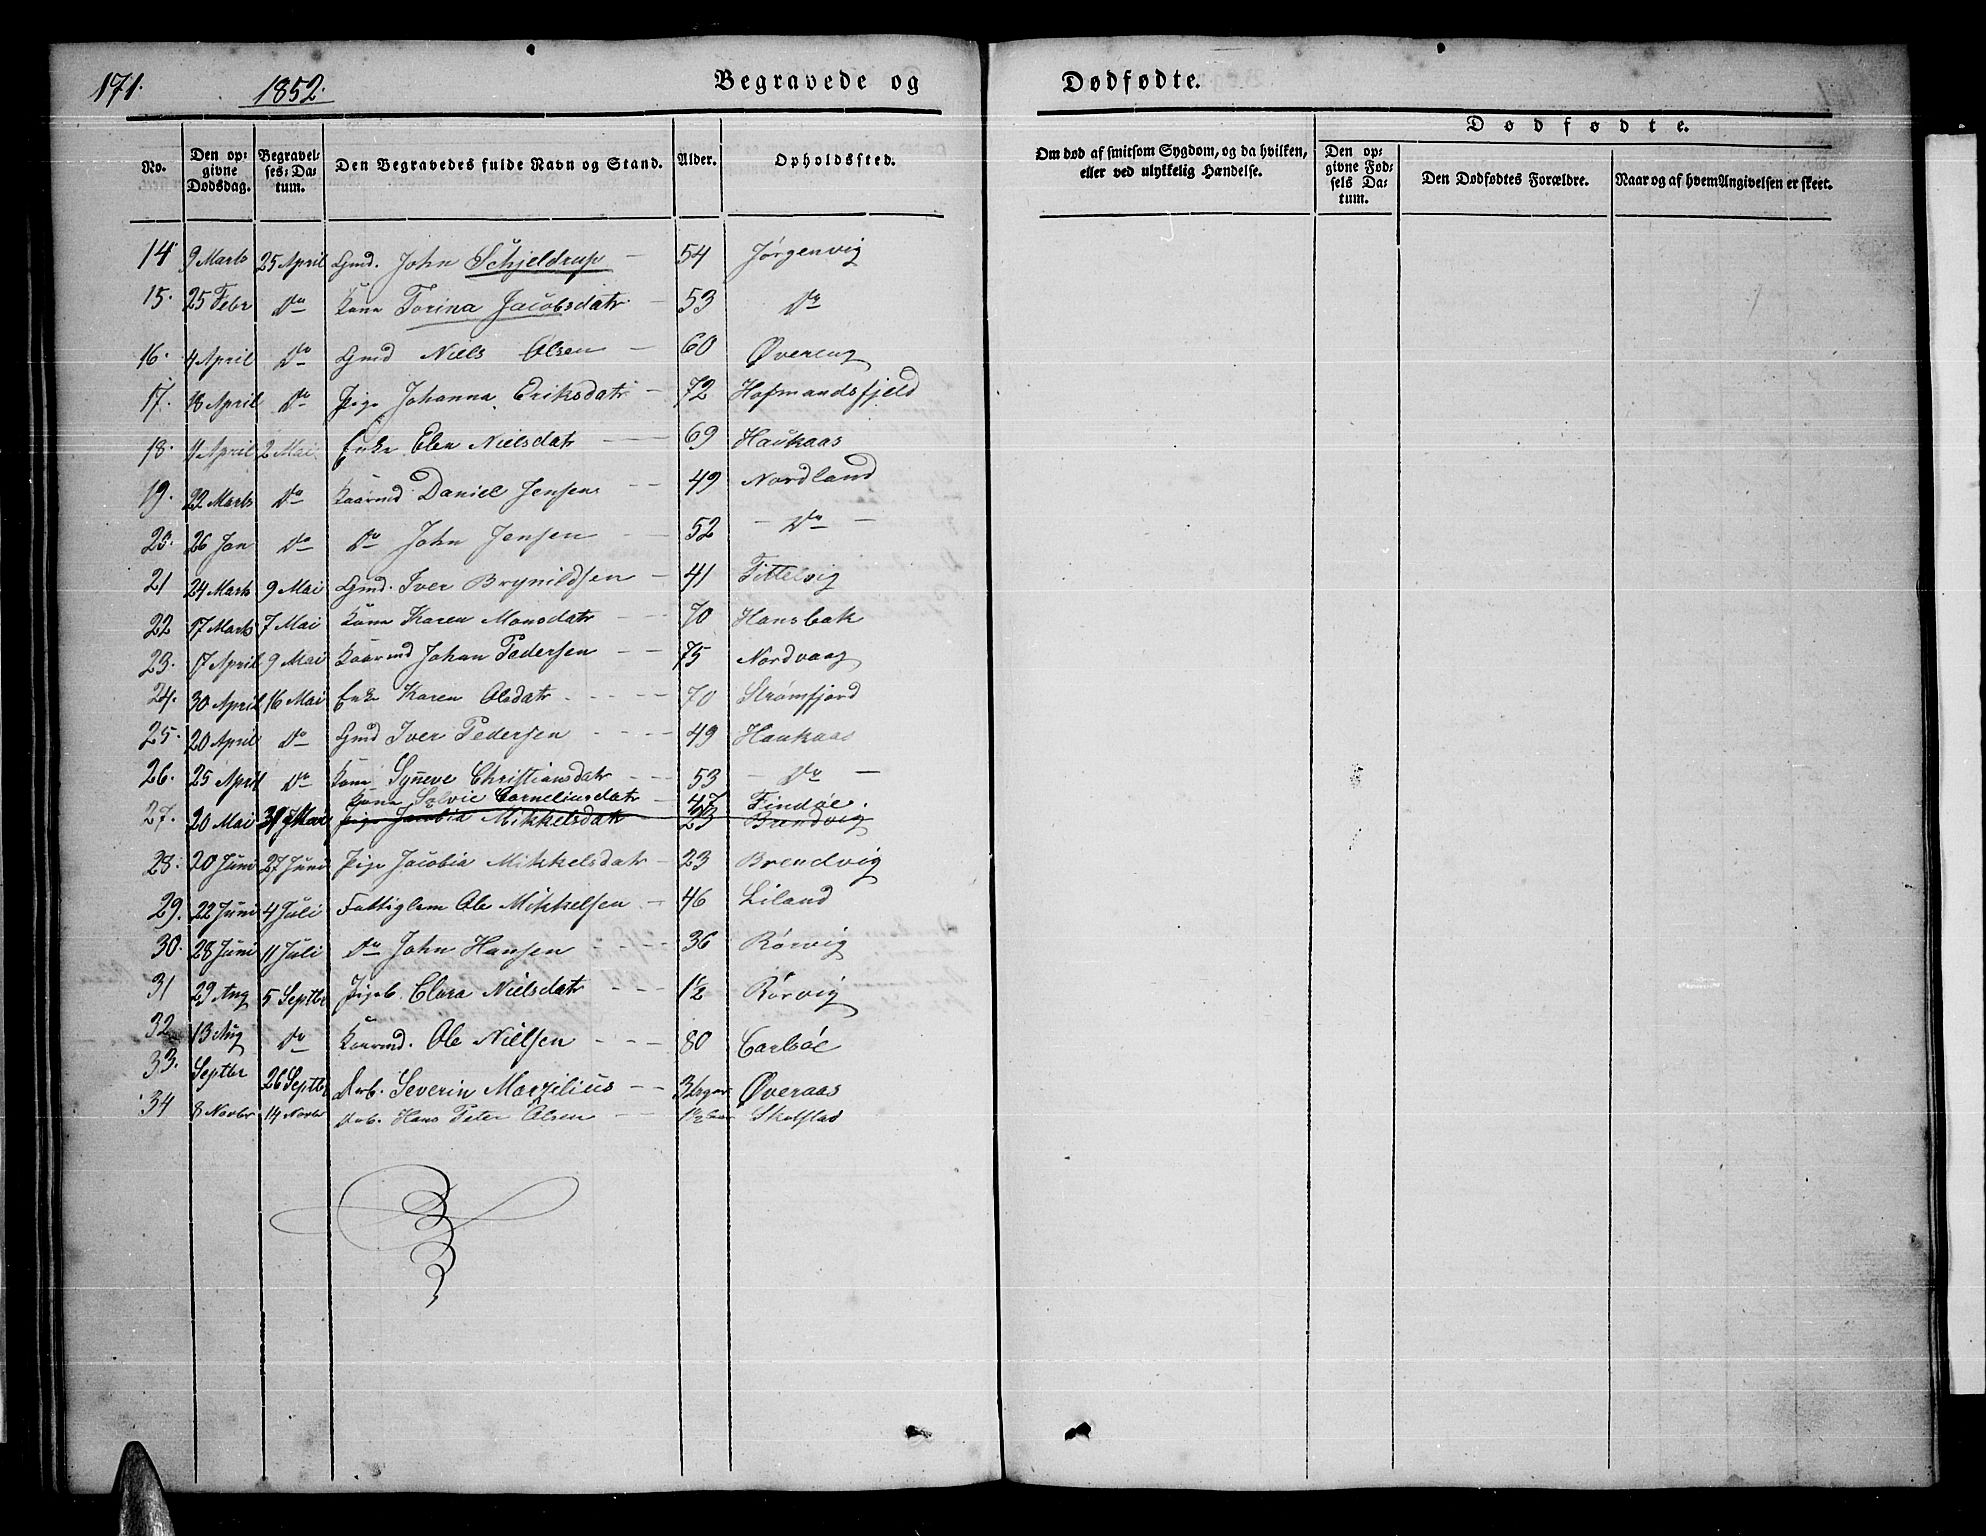 171. 1852. Begravede og Dødfødte.
Dødfødte.
No. Den opgivne Dødsdag. Begravelses-Datum. Den Begravedes fulde Navn og Stand. Alder. Opholdssted. Om død af smitsom Sygdom, og da hvilken, eller ved ulykkelig Hændelse. Den opgivne Fødsels Datum. Den Dødfødtes Forældre. Naar og af hvem Angivelsen er skeet.
14 9 Marts 25 April Gmd. John Schjeldrup 54 Jørgenvig
15. 25 Febr Do Kone Torina Jacobsdatr 53 Do
16. 4 April Do Gmd Niels Olsen 60 Øvereng
17. 18 April Do Pige Johanna Eriksdatr 72 Hofmandsfjeld
18. 11 April 2 Mai Enke Elen Nielsdatr 69 Haukaas
19. 22 Marts Do Kaarmd Daniel Jensen 49 Nordland
20. 26 Jan Do Do John Jensen 52 Do
21 24 Marts 9 Mai Gmd. Iver Brynildsen 41 Tittelvig
22 17 Marts 7 Mai Kone Karen Monsdatr 70 Hansbak
23. 17 April 9 Mai Kaarmd Johan Pedersen 75 Nordvaag
24. 30 April 16 Mai Enke Karen Olsdatr 70 Strømfjord
25. 20 April Do Gmd Iver Pedersen 49 Haukaas
26. 25 April Do Kone Syneve Christiansdatr 53 Do
Kone Solvie Corneliusdatr 47 Findøe.
27. 20 Mai 31 Mai Pige Jacobia Mikkelsdatr 23 Brendvig
28. 20 Juni 27 Juni Pige Jacobia Mikkelsdatr 23 Brendvig
29. 22 Juni 4 Juli Fattiglem Ole Mikkelsen 46 Liland
30. 28 Juni 11 Juli Do John Hansen 36 Rørvig
31 29 Aug 5 Septbr Pigeb. Clara Nielsdatr 1½ Rørvig
32 13 Aug Do Kaarmd. Ole Nielsen 80 Carlsøe
33. Septbr 26 Septbr Drb. Severin Marzelius Øveraas
34 8 Novbr 14 Novbr Drb. Hans Peter Olsen Skotstad